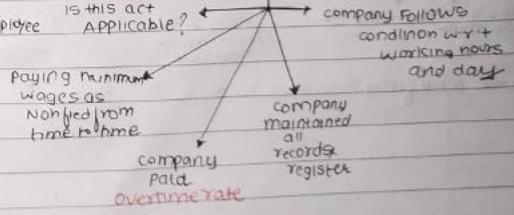 is this act
ployee APPLICABLE?
company Follows
condinon w·r·t
working hours
and day
paying minimum
wages as
Notified from
time to time
company
maintained
all
records
register
company
paid
overtime rate